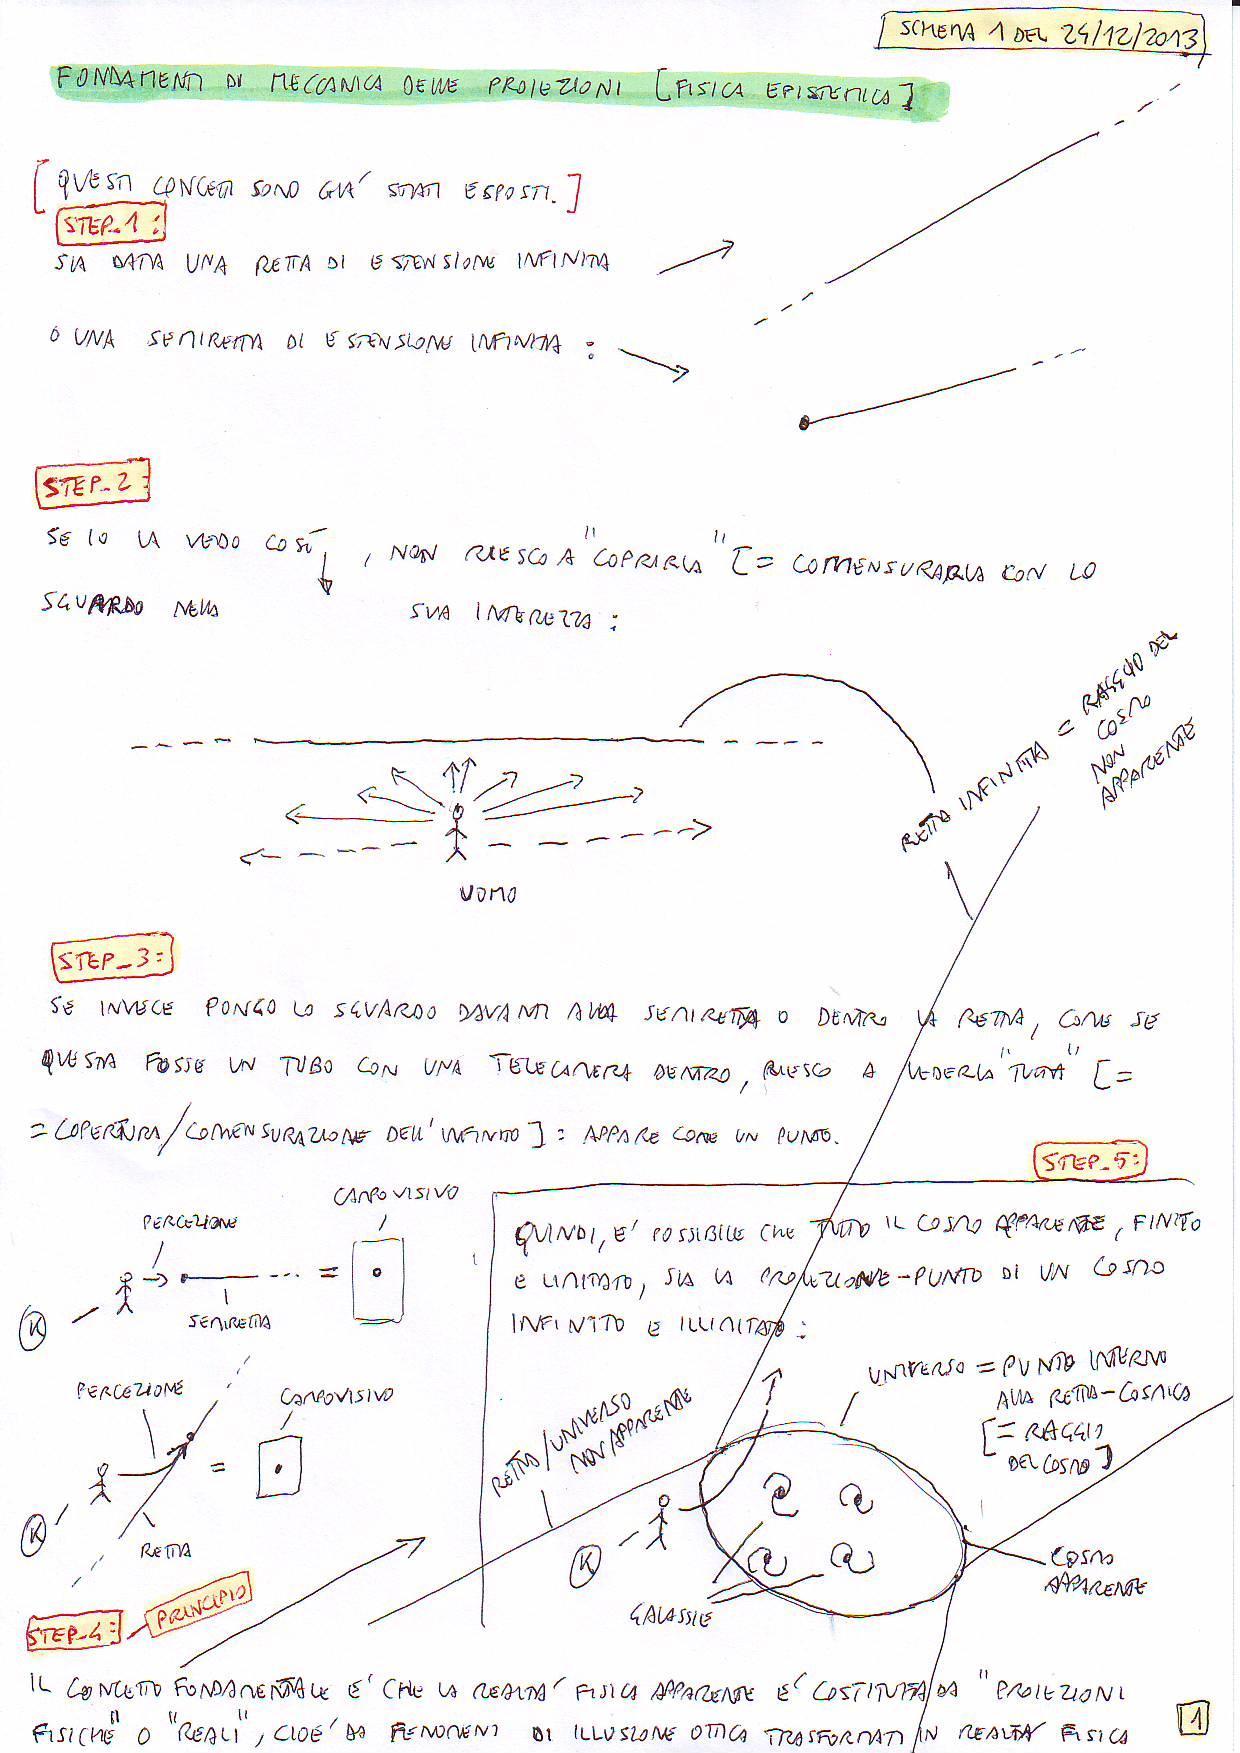 SCHEMA 1 DEL 24/12/2013
FONDAMENTI DI MECCANICA DELLE PROIEZIONI [FISICA EPISTEMICA]
[QUESTI CONCETTI SONO GIA' STATI ESPOSTI.]
STEP_1:
SIA DATA UNA RETTA DI ESTENSIONE INFINITA
O UNA SEMIRETTA DI ESTENSIONE INFINITA:
STEP_2:
SE IO LA VEDO COSÌ, NON RIESCO A "COPRIRLA" [= COMENSURARLA CON LO
SGUARDO NELLA SUA INTEREZZA:
RETTA INFINITA = RAGGIO DEL
COSMO
NON
APPARENTE
UOMO
STEP_3:
SE INVECE PONGO LO SGUARDO DAVANTI ALLA SEMIRETTA O DENTRO LA RETTA, COME SE
QUESTA FOSSE UN TUBO CON UNA TELECAMERA DENTRO, RIESCO A VEDERLA "TUTTA" [=
= COPERTURA/COMENSURAZIONE DELL'INFINITO]: APPARE COME UN PUNTO.
PERCEZIONE
CAMPO VISIVO
=
K
SEMIRETTA
PERCEZIONE
CAMPO VISIVO
=
K
RETTA
STEP_5:
QUINDI, E' POSSIBILE CHE TUTTO IL COSMO APPARENTE, FINITO
E LIMITATO, SIA LA PROIEZIONE-PUNTO DI UN COSMO
INFINITO E ILLIMITATO:
UNIVERSO = PUNTO INTERNO
ALLA RETTA-COSMICA
[= RAGGIO
DEL COSMO]
RETTA/UNIVERSO
NON APPARENTE
K
GALASSIE
COSMO
APPARENTE
STEP_4:
PRINCIPIO
IL CONCETTO FONDAMENTALE E' CHE LA REALTA' FISICA APPARENTE E' COSTITUITA DA "PROIEZIONI
FISICHE" O "REALI", CIOE' DA FENOMENI DI ILLUSIONE OTTICA TRASFORMATI IN REALTA' FISICA
1